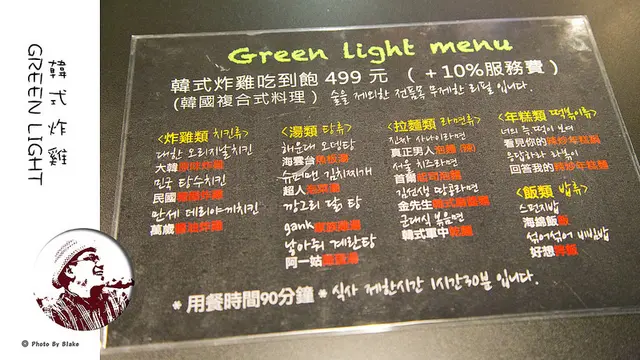 韓式炸雞
GREEN LIGHT
Green light menu
韓式炸雞吃到飽 499 元 ( +10%服務費 )
(韓國複合式料理) 술을 제외한 전품목 무제한 리필 입니다.
<炸雞類 치킨류>
대한 오리지날치킨
大韓原味炸雞
민국 탕수치킨
民國糖醋炸雞
만세 데리야끼치킨
萬歲醬油炸雞
<湯類 탕류>
해운대 오뎅탕
海雲台魚板湯
슈퍼맨 김치찌개
超人泡菜湯
깐그리 닭 탕
gank
날아줘 계란탕
阿一姑
<拉麵類 라면류>
진짜 사나이라면
真正男人泡麵 (辣)
서울 치즈라면
首爾起司泡麵
김선생 땅콩라면
金先生韓式麻醬麵
군대식 볶음면
韓式軍中乾麵
<年糕類 떡볶이류>
너의 目 떡이 보여
看見你的辣炒年糕鍋
응답하라
回答我的辣炒年糕鍋
<飯類 밥류>
스펀지밥
海綿飯
섞어섞어 비빔밥
好想拌飯
* 用餐時間90分鐘 * 식사 제한시간 1시간30분 입니다.
© Photo By Blake